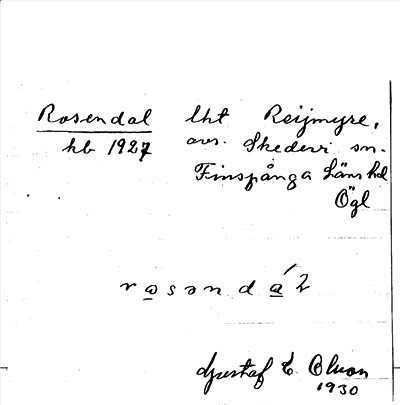 Rosendal lht Reijmyre,
kb 1927 avs. Skedevi sn.
Finspånga läns hd
Ögl
rosənda´l
Gustaf E. Olson
1930